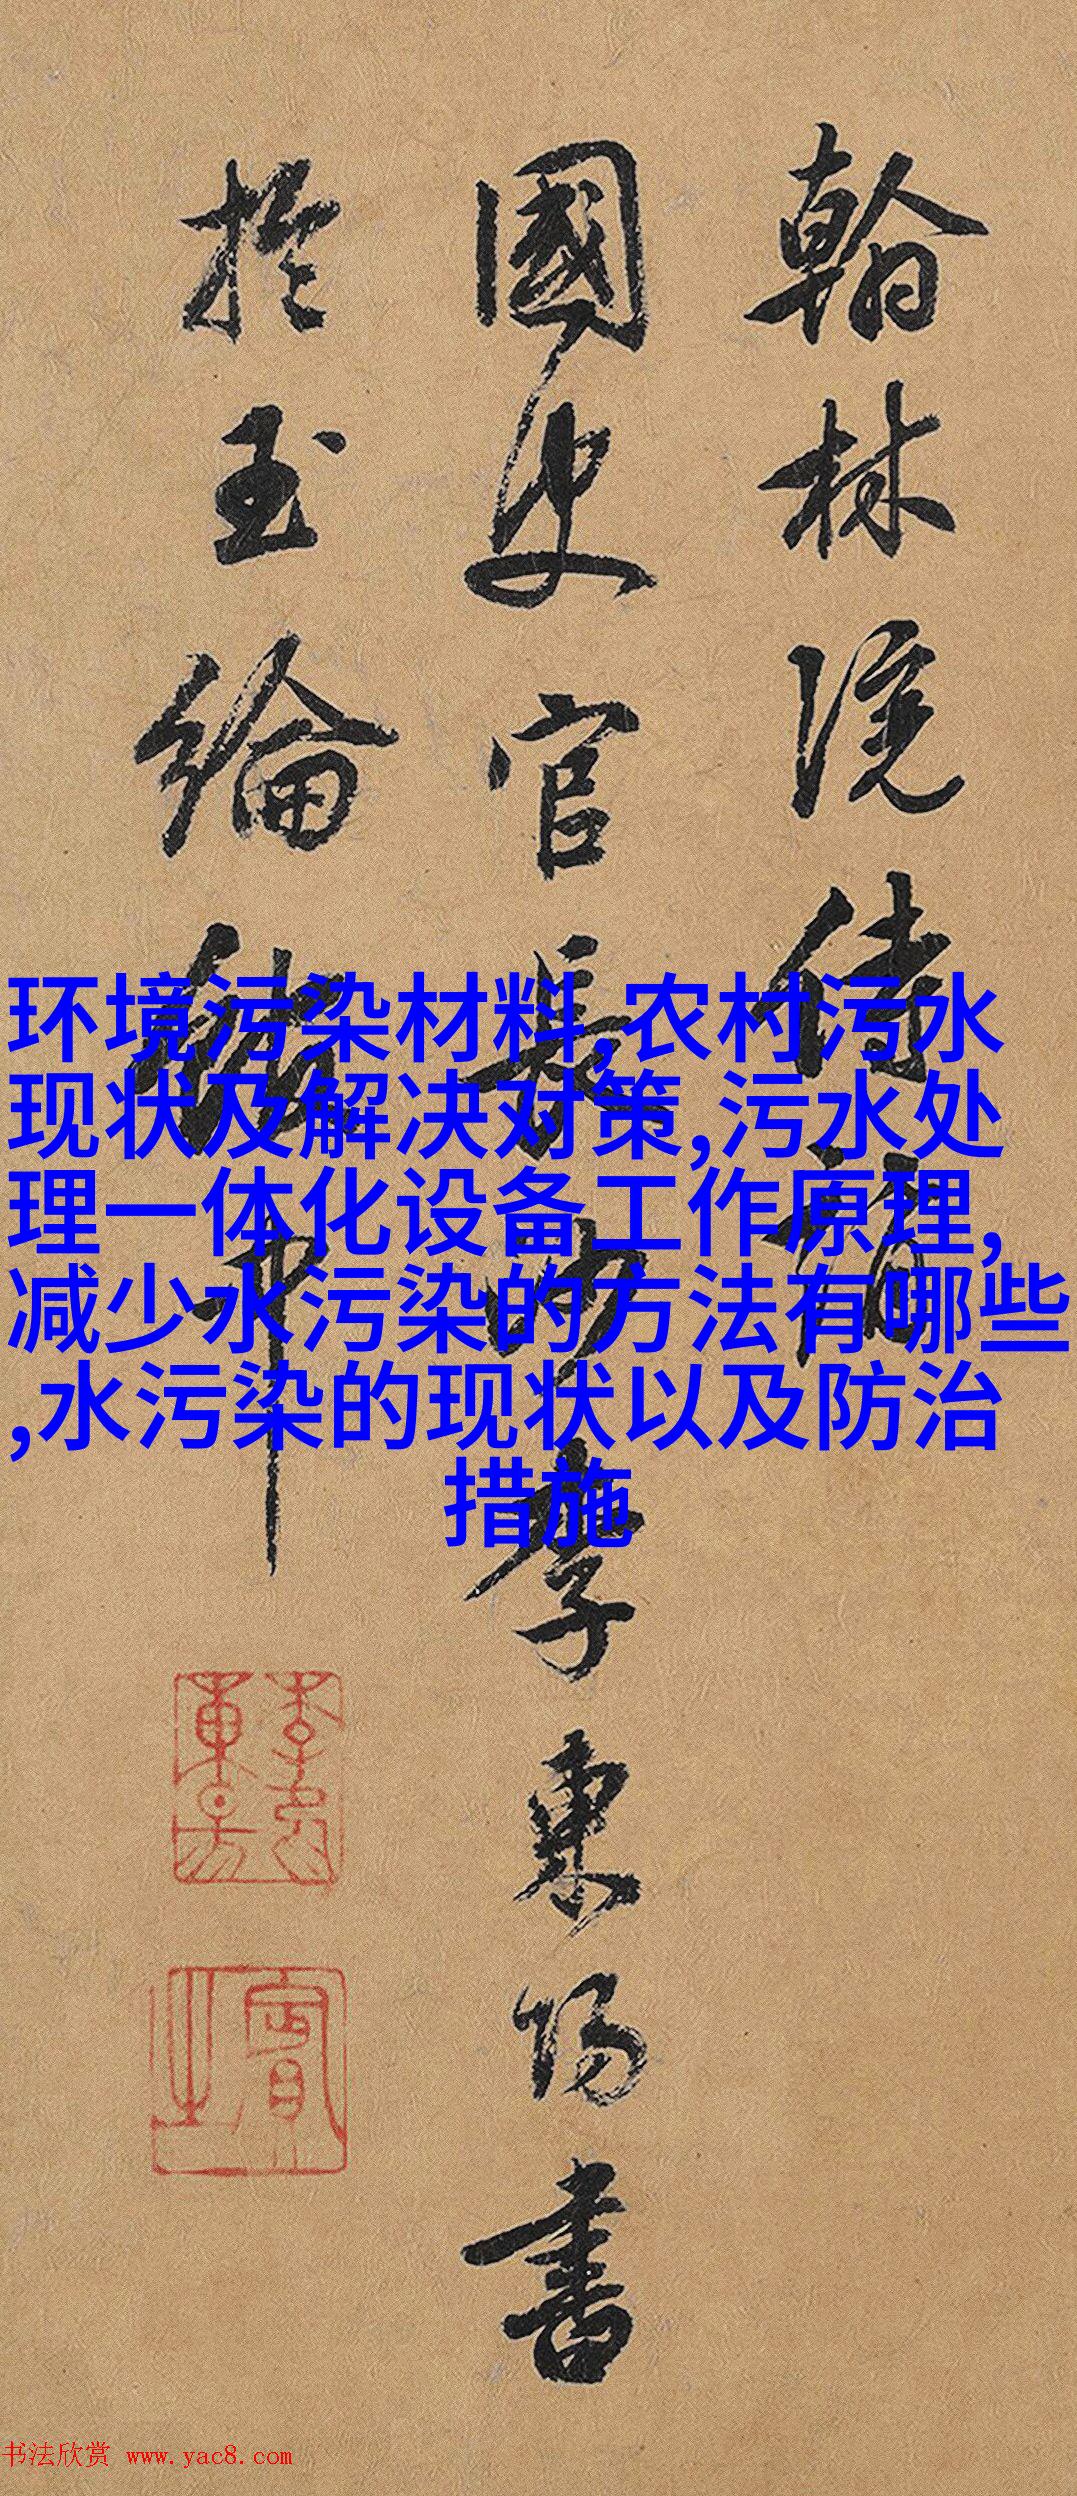 翰林院侍講
國史官長沙李東陽書
於玉綸
中
环境污染材料,农村污水
现状及解决对策,污水处
理一体化设备工作原理,
减少水污染的方法有哪些
,水污染的现状以及防治
措施
书法欣赏 www.yac8.com